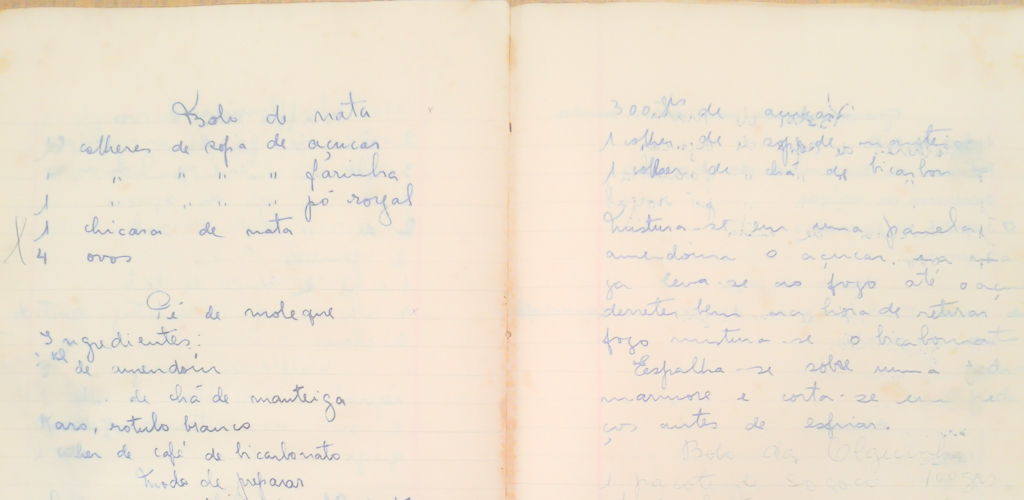 Bolo de nata
colheres de sopa de açucar
" " " " " farinha
1 " " " " pó royal
1 chicara de nata
4 ovos
Pé de moleque
Ingredientes:
de amendoin
de chá de manteiga
Karo, rotulo branco
colher de café de bicarbonato
Modo de preparar
300 grs de açucar
1 colher de sopa de mantei
1 colher de chá de bicarbon
Mistura-se em uma panela, o
amendoim o açucar
ga leva-se ao fogo até o açu
derreter bem na hora de retirar
fogo mistura-se o bicarbonat
Espalha-se sobre uma
marmore e corta-se em
ços antes de esfriar.
Bolo da
1 pacote de